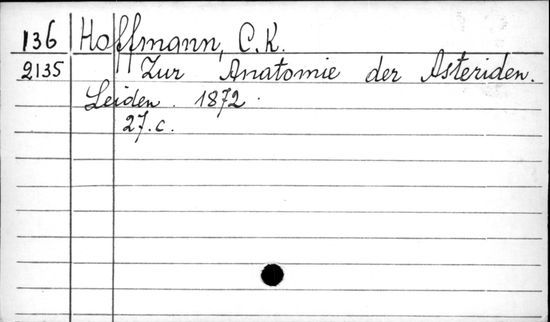 136 Hoffmann, C.K.
2135 Zur Anatomie der Asteriden.
Leiden. 1872.
27.c.